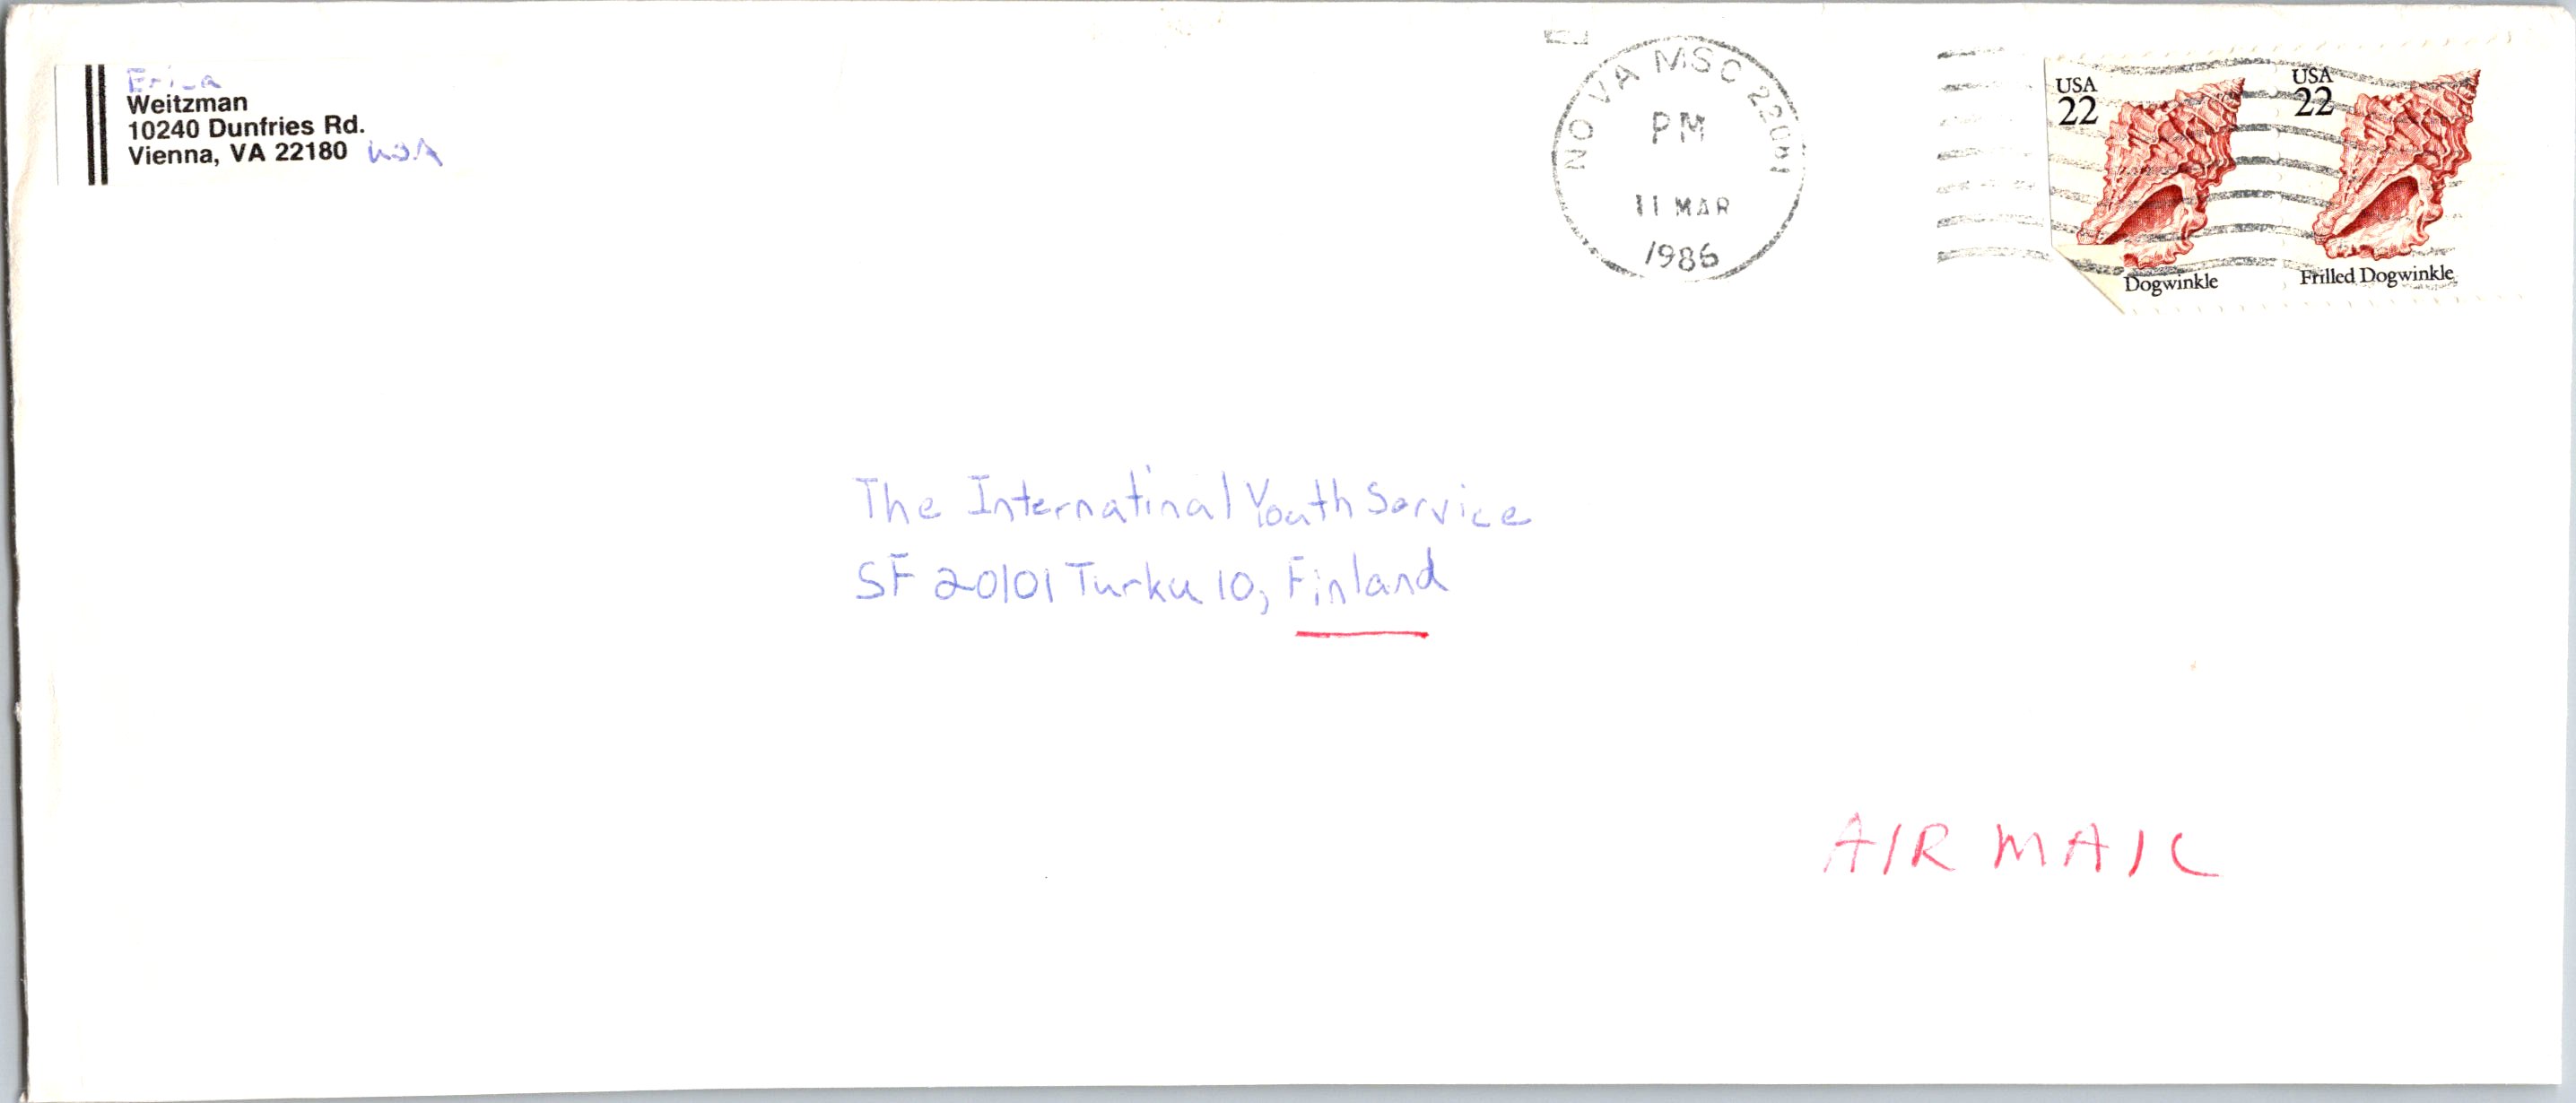 Erica
Weitzman
10240 Dunfries Rd.
Vienna, VA 22180 USA
NO VA MSC 22081
PM
11 MAR
1986
USA
22
Dogwinkle
USA
22
Frilled Dogwinkle
The Internatinal Youth Service
SF 20101 Turku 10, Finland
AIR MAIL